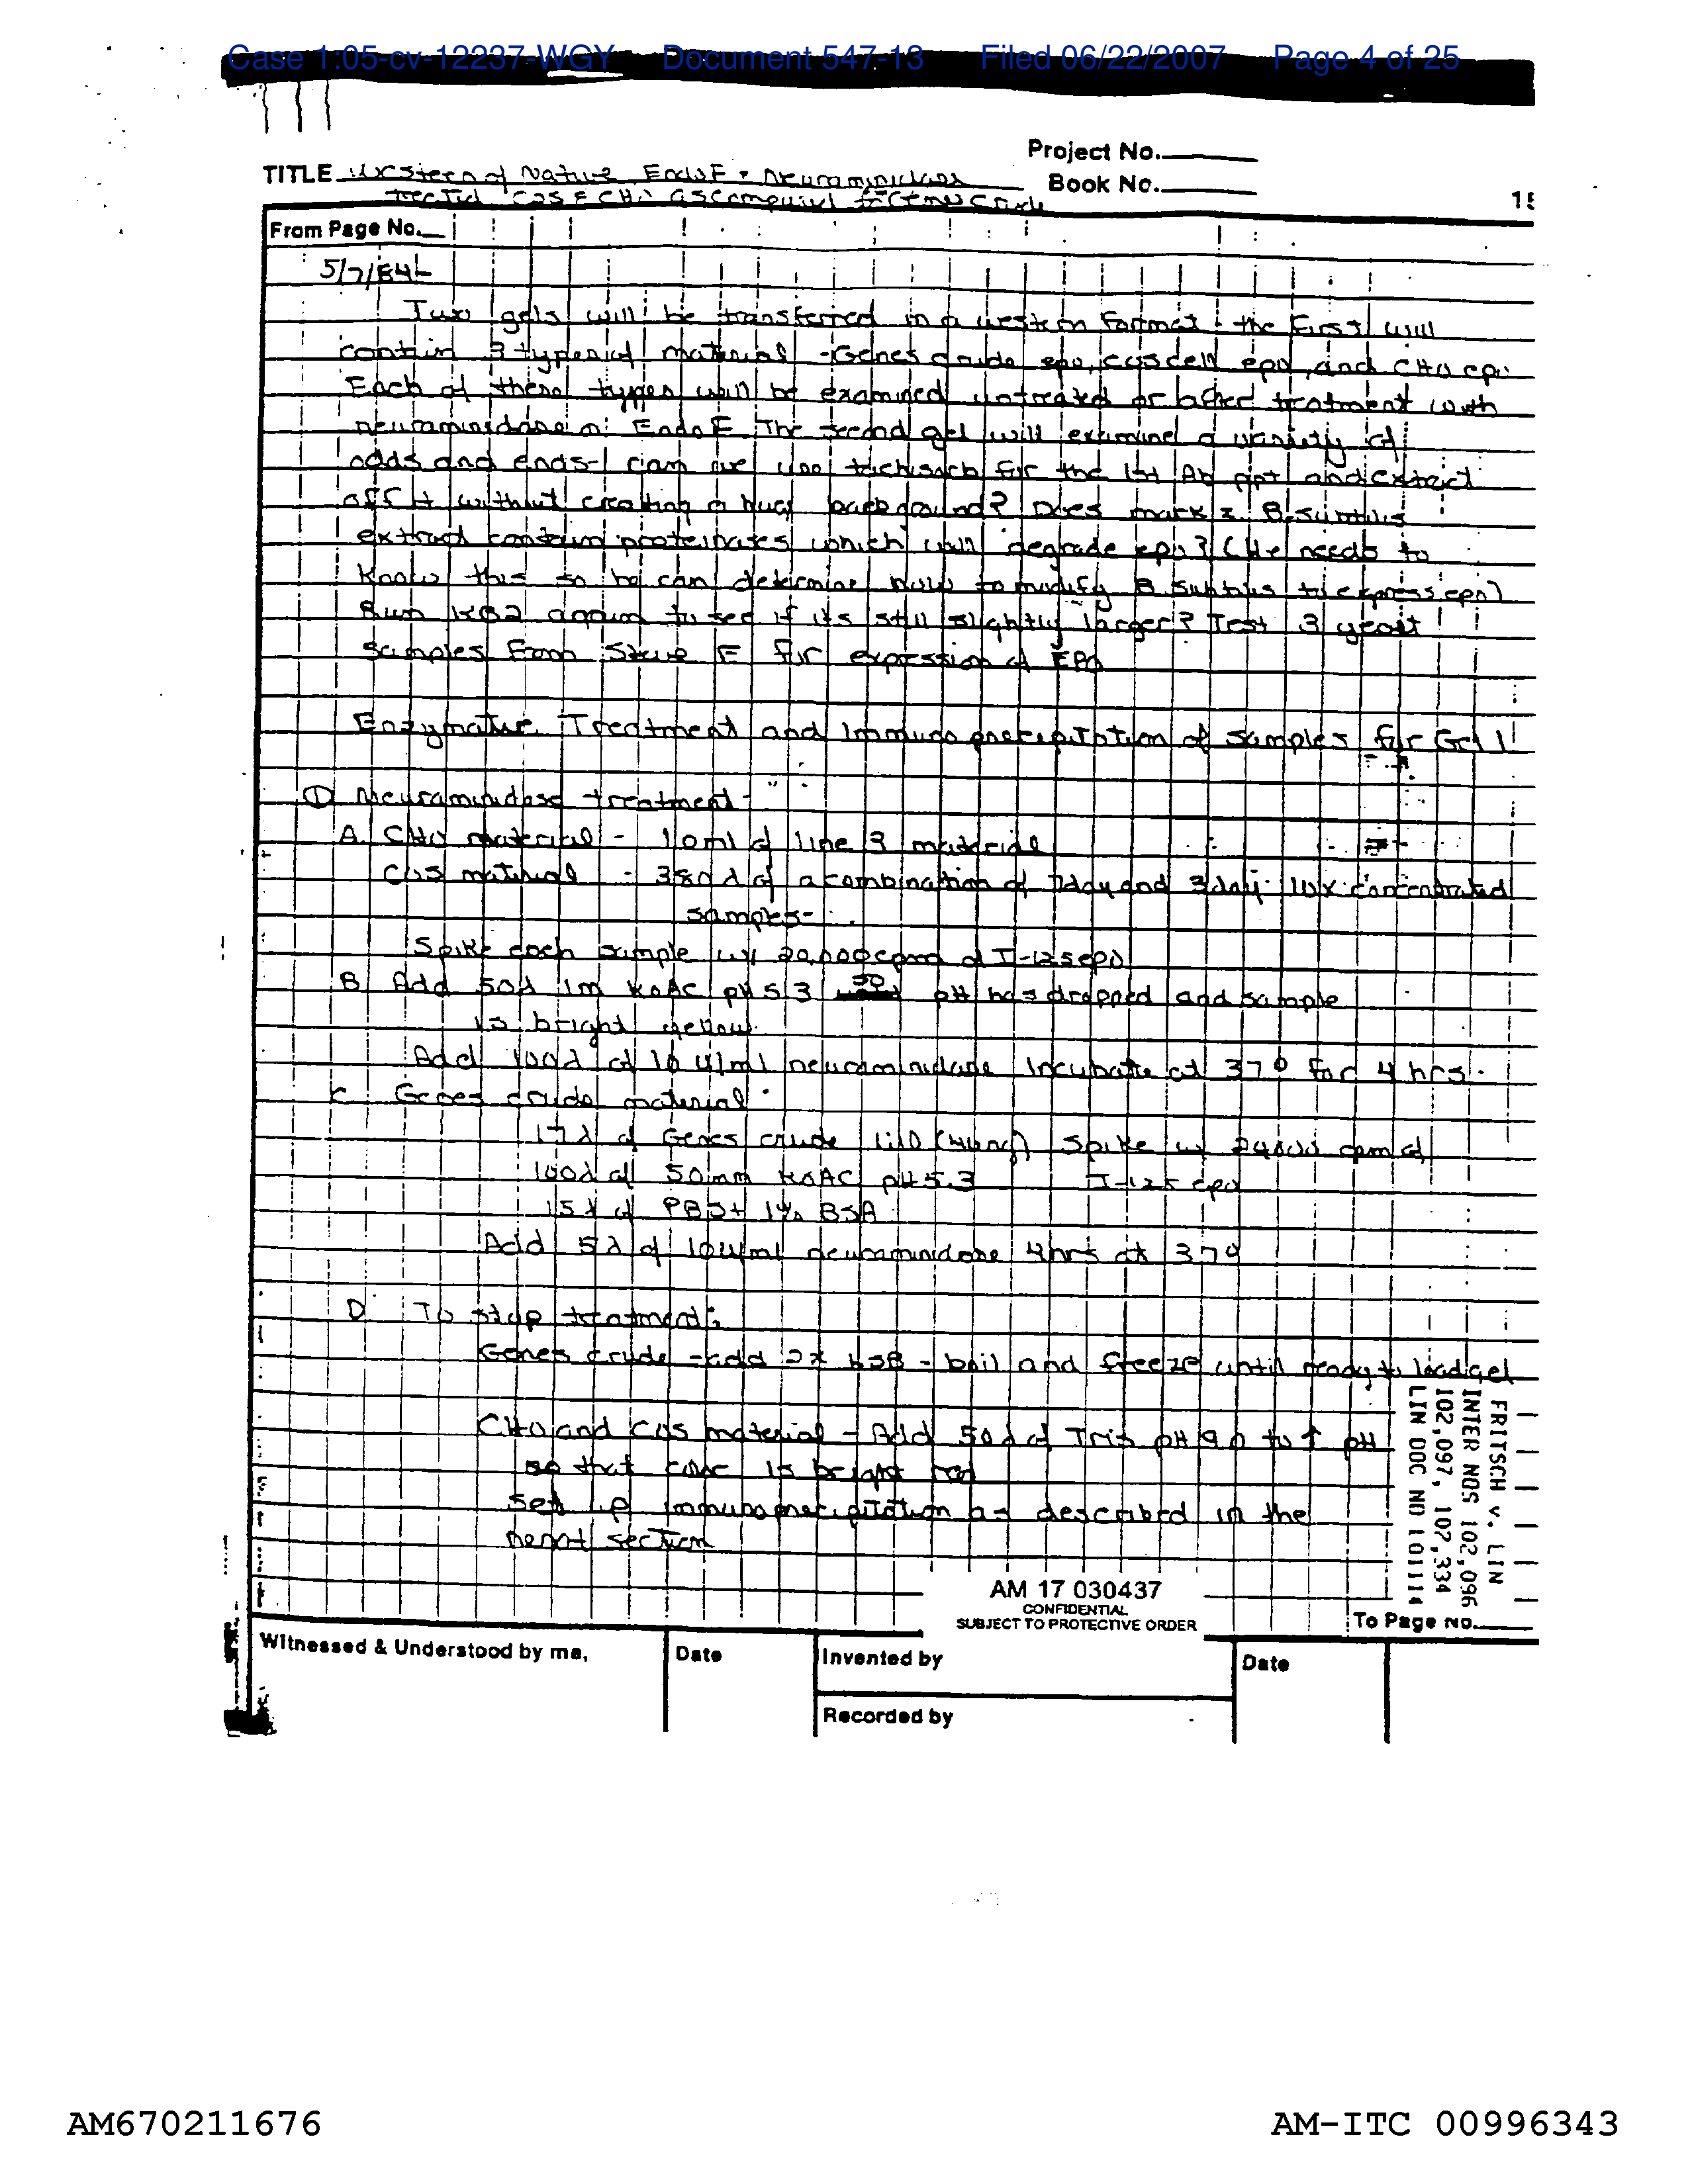 Case 1:05-cv-12237-WGY Document 547-13 Filed 06/22/2007 Page 4 of 25
Project No.
TITLE Western of Native, EndoF & Neuraminidase
Book No.
treated COS & CHO as compared to Genes Crude
15
From Page No.
5/7/84-
Two gels will be transferred in a western format - the first will
contain 3 types of material - Genes crude epo, cos cell epo, and CHO epo
Each of these types will be examined untreated or after treatment with
neuraminidase or Endo F. The second gel will examine a variety of
odds and ends - can we use for the 1st Ab ppt and extract
off it without creating a huge background? Does mark's B. subtilis
extract contain proteinases which will degrade epo? (He needs to
know this so he can determine how to modify B subtilis to express epo)
Run again to see if its still slightly larger? Test 3 yeast
samples from Steve E for expression of EPO
Enzymatic Treatment and Immunoprecipitation of samples for Gel 1
① Neuraminidase treatment -
A. CHO material - 10ml of line 3 material
COS material - 380λ of a combination of 7day and 3day 10x concentrated
samples -
Spike each sample w/ 20,000cpm of I-125 epo
B Add 50λ 1m KOAC pH 5.3 so pH has dropped and sample
is bright yellow.
Add 100λ of 10 u/ml neuraminidase Incubate at 37° for 4 hrs.
C. Genes crude material
17λ of Genes crude 1:10 Spike w 24000 cpm of
100λ of 50mm KOAC pH 5.3 I-125 epo
15λ of PBS + 1% BSA
Add 5λ of 10u/ml neuraminidase 4hrs at 37°
D. To stop treatment:
Genes crude - add 2x LSB - boil and freeze until ready to load gel
CHO and COS material - Add 50λ of Tris pH 9.0 to ↑ pH
so that color is bright red
Set up immunoprecipitation as described in the
next section
FRITSCH v. LIN
INTER NOS 102,096
102,097, 102,334
LIN DOC NO 101114
AM 17 030437
CONFIDENTIAL
SUBJECT TO PROTECTIVE ORDER
To Page No.
Witnessed & Understood by me,
Date
Invented by
Date
Recorded by
AM670211676
AM-ITC 00996343